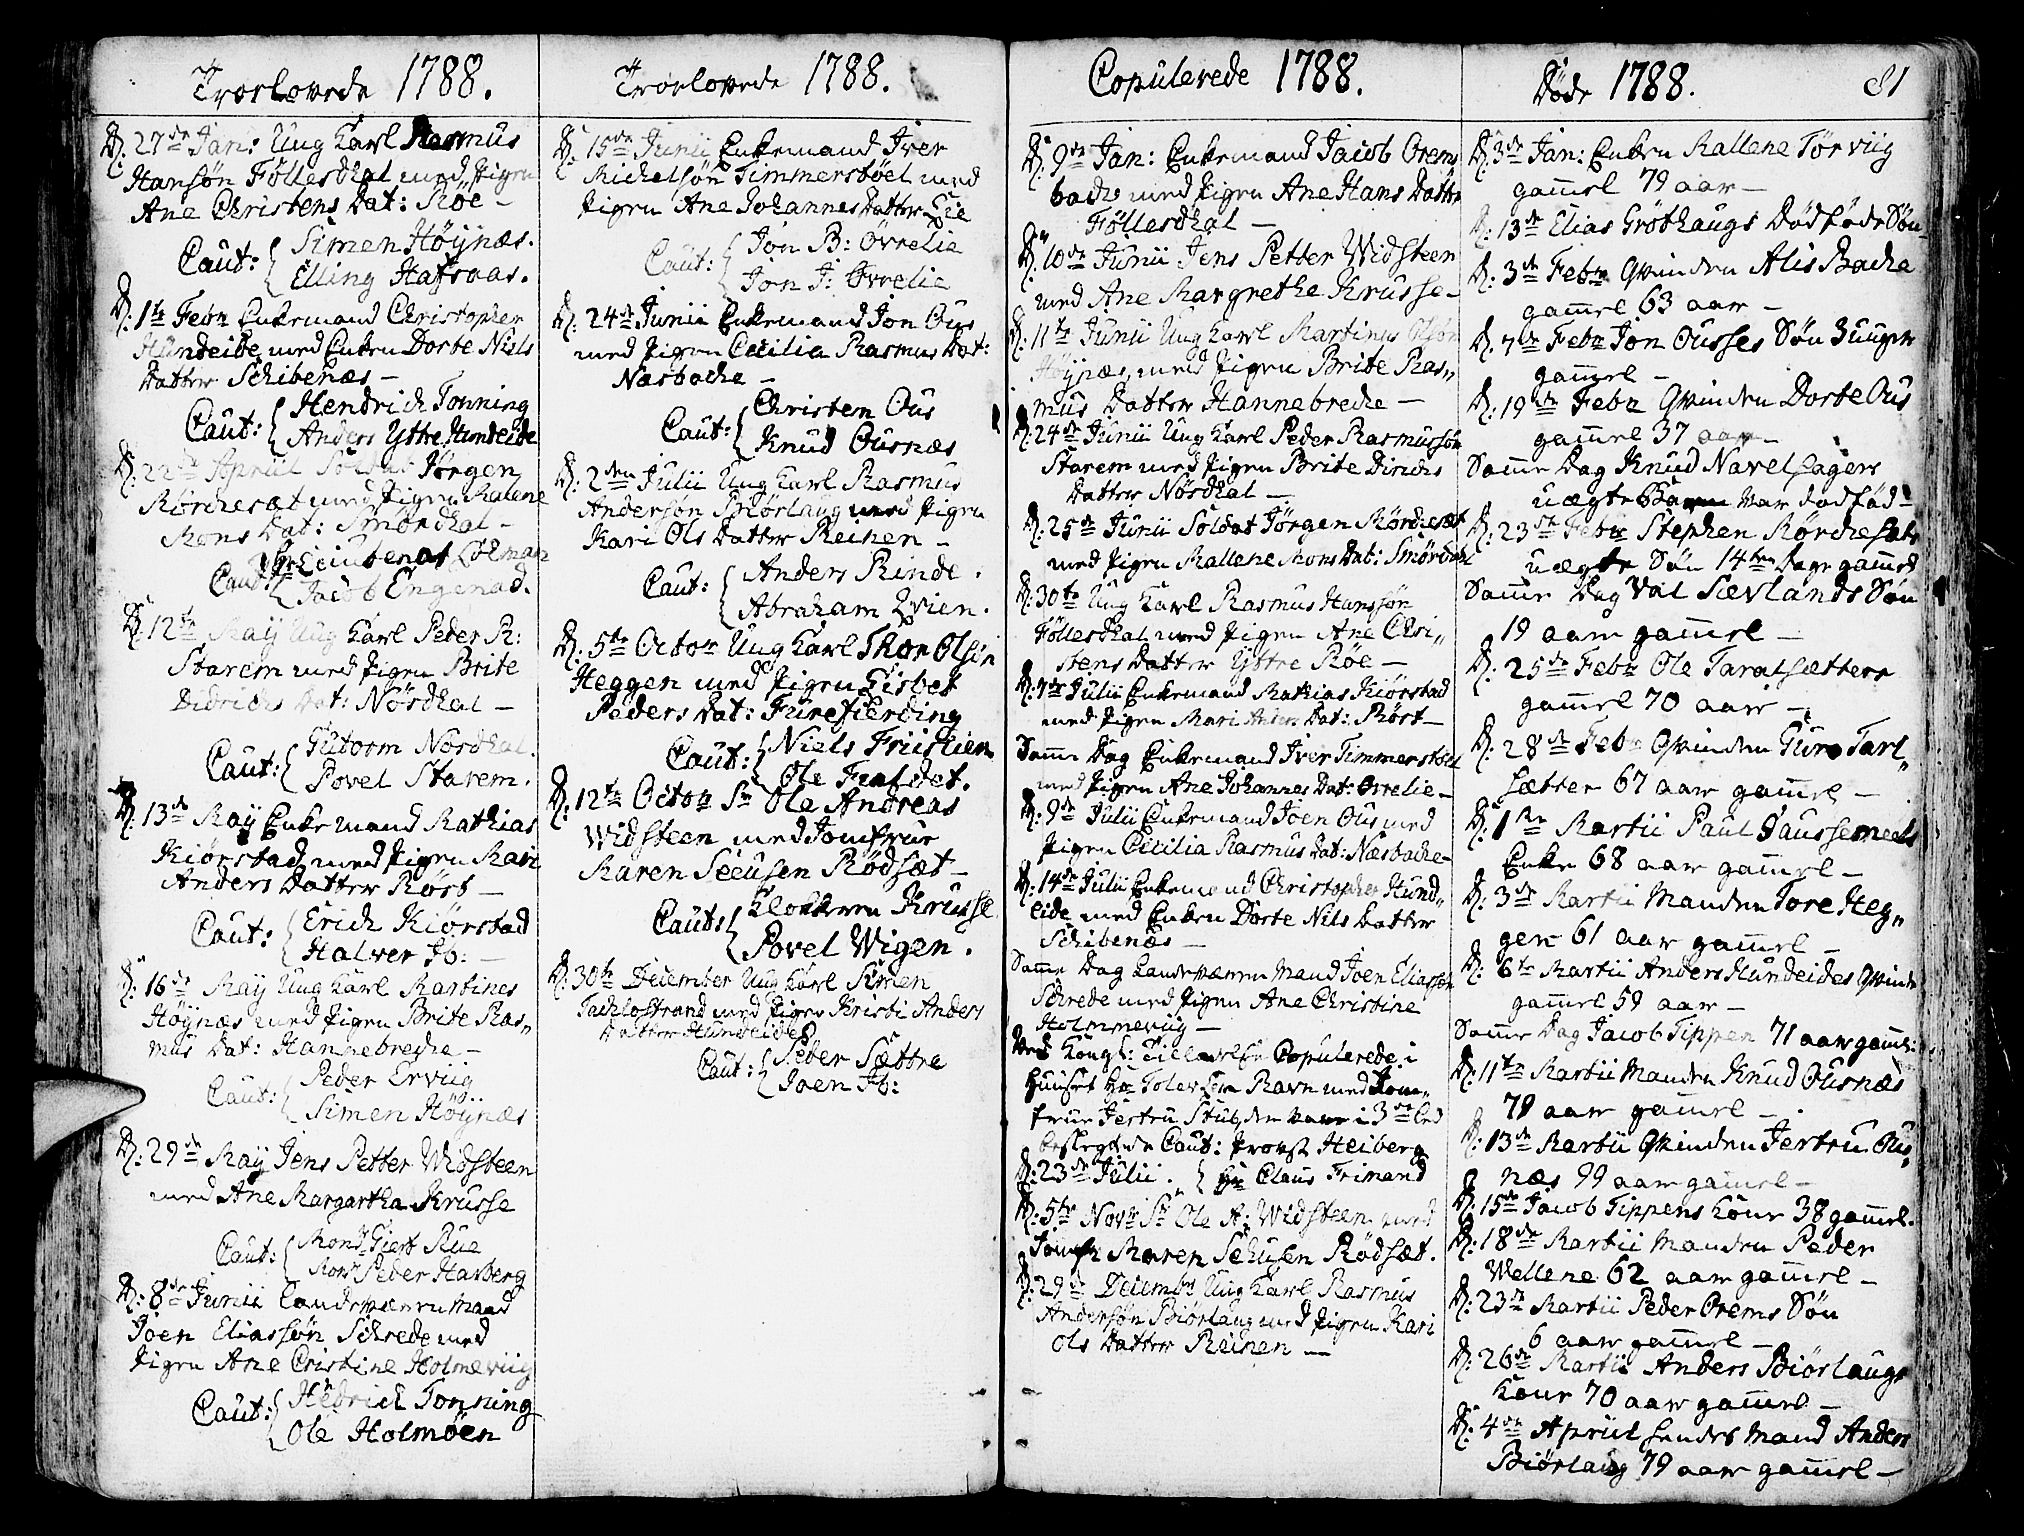 Troelovede 1788.
D: 27de Jan: Ung Karl Rasmus
Hansøn Föllesdhal med Pigen
Ane Christens Dat: Röe —
Caut: { Simen Höÿnæs.
Elling Hafsaas.
D: 1te Febr Enkemand Christopher
Hundeide med Enken Dorte Niels
Datter Schibenæs —
Caut: { Hendrich Tonning
Anders Yttre Hundeide
D: 22de Apriil Soldat Jørgen
Rørchesæt med Pigen Malene
Mons Dat: Smördhal —
Caut: {
Jacob Engenad.
D: 12te Maÿ Ung Karl Peder R:
Starem med Pigen Brite
Didrichs Dat: Nördhal —
Caut: { Gutorm Nordhal.
Povel Starem.
D: 13de Maÿ Enkemand Mathias
Kiörstad med Pigen Mari
Anders Datter Röst —
Caut: { Erich Kiörstad
Halver Ib: —
D: 16de Maÿ Ung Karl Martines
Höÿnæs med Pigen Brite Ras„
mus Dat: Hannebreche —
Caut: { Peder Erviig
Simen Höÿnæs
D: 29de Maÿ Jens Petter Widsteen
med Ane Margartha Krusse
Caut: { Monsr Giert Rue
Monsr Peder Harberg
D: 8de Junii Landeværn Mand
Joen Eliassön Schrede med
Pigen Ane Cristine Holmeviig
Caut: { Hedrich Tonning
Ole Holmöen
Troelovede 1788.
D: 15de Junii Enkemand Iver
Michelsön Timmerstöel med
Pigen Ane Johannes Datter Lie
Caut: { Jon B: Övrelie
Jon J: Övrelie
D: 24de Junii Enkemand Jon Ous
med Pigen Cecilia Rasmus Dat:
Næsbache —
Caut: { Christen Ous
Knud Ousnæs
D: 2den Julii Ung Karl Rasmus
Andersön Biörlaug med Pigen
Kari Ols Datter Reinen —
Caut: { Anders Rinde.
Abraham Qvien.
D: 5te Octor Ung Karl Thor Olsön
Heggen med Pigen Lisbet
Peders Dat: Furefierding
Caut: { Niels Friislien
Ole Frisldet.
D: 12te Octor Sr Ole Andreas
Widsteen med Jomfrue
Maren Seeusen Rödsæt —
Caut: { Klokkeren Krusse
Povel Wigen.
D: 30te December Ung Karl Simen
Tachlostrand med Pigen Kristi Anders
Datter Hundeide
Caut: { Peder Sættre
Joen Ib:
Copulerede 1788.
D: 9de Jan: Enkemand Jacob Orems
bache med Pigen Ane Hans Datter
Föllesdhal —
D: 10de Junii Jens Petter Widsteen
med Ane Margrethe Krusse —
D: 11te Junii Ung Karl Martinus Olsön
Höÿnæs, med Pigen Brite Ras„
mus Datter Hannebreche —
D: 24de Junii Ung Karl Peder Rasmussön
Starem med Pigen Brite Dirichs
Datter Nördhal —
D: 25de Junii Soldat Jörgen Rörchesæt
med Pigen Mallene Mons Dat: Smördhal
D: 30te Ung Karl Rasmus Hanssön
Föllesdhal med Pigen Ane Chri„
stens Datter Yttre Röe —
D: 7de Julii Enkemand Mathias Kiörstad
med Pigen Mari Anders Dat: Röst —
Samme Dag Enkemand Iver Timmerstöel
med Pigen Ane Johannes Dat: Övrelie —
D: 9de Julii Enkemand Joen Ous med
Pigen Cicilia Rasmus Dat: Næsbache —
D: 14de Julii Enkemand Christopher Hund„
eide med Enken Dorte Nils Datter
Schibenæs —
Samme Dag Landeværn Mand Joen Eliassön
Schrede med Pigen Ane Christine
Holmmeviig —
Ved Kongl: Tilladelse Copulerede i
Huuset Hr Toler Ravn med Jom„
frue Jertru Stub, der var i 3de Led
beslegtede Caut: Provst Heiberg
D: 23de Julii. { Hr Claus Frimand
D: 5te Novr Sr Ole A: Widsteen med
Jomfr Maren Seeusen Rödsæt.
D: 29de Decembr Ung Karl Rasmus
Andersön Biörlaug med Pigen Kari
Ols Datter Reinen —
Døde 1788.
81
D: 3de Jan: Enken Mallene Törviig
gammel 79 aar —
D: 13de Elias Gröthaugs Dödföde Søn
D: 3de Febr Qvinden Alis Bache
gammel 63 aar —
D: 7de Febr Jon Ousses Sön 3 uuger
gammel —
D: 19de Febr Qvinden Dorte Ous
gammel 37 aar —
Samme Dag Knud Navelsagers
uægte Barn var dödfød —
D: 23de Febr Stephen Rörchesæts
uægte Sön 14ten Dage gammel
Samme Dag Val Sævlands Sön
19 aar gammel —
D: 25de Febr Ole Taralsættere
gammel 70 aar —
D: 28de Febr Qvinden Guro Tarl„
sætter 67 aar gammel —
D: 1ste Martii Paul Faussemeels
Enke 68 aar gammel —
D: 3de Martii Manden Tore Heg„
gen 61 aar gammel —
D: 6te Martii Anders Hundeides Qvinde
gammel 59 aar —
Samme Dag Jacob Tippen 71 aar gamml:
D: 11te Martii Manden Knud Ousnæs
79 aar gammel —
D: 13de Martii Qvinden Jertru Ous„
næs 79 aar gammel —
D: 15de Jacob Tippens Kone 38 gammel.
D: 18de Martii Manden Peder
Wellene 62 aar gammel —
D: 23de Martii Peder Orems Sön
6 aar gammel —
D: 26de Martii Anders Biörlaugs
Kone 70 aar gammel —
D: 4de Apriil hendes Mand Anders
Biörlaug 79 aar gammel —